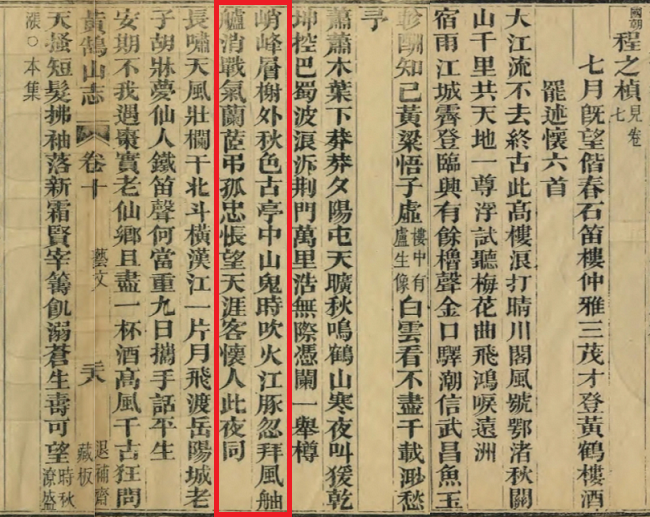 國朝
程之楨見卷七
七月旣望偕春石笛樓仲雅三茂才登黃鶴樓酒
罷述懷六首
大江流不去終古此高樓浪打晴川閣風號鄂渚秋關
山千里共天地一尊浮試聽梅花曲飛鴻唳遠洲
宿雨江城霽登臨興有餘櫓聲金口驛潮信武昌魚玉
軫酬知己黃粱悟子虛樓中有盧生像白雲看不盡千載渺愁
予
蕭蕭木葉下莽莽夕陽屯天曠秋鳴鶴山寒夜叫猨乾
坤控巴蜀波浪泝荆門萬里浩無際憑闌一舉樽
峭峰層榭外秋色古亭中山鬼時吹火江豚忽拜風舳
艫消戰氣蘭茝弔孤忠悵望天涯客懷人此夜同
長嘯天風壯欄干北斗橫漢江一片月飛渡岳陽城老
子胡牀夢仙人鐵笛聲何當重九日攜手話平生
安期不我遇棗實老仙鄉且盡一杯酒高風千古狂問
黃鵠山志 卷十 藝文 二十八 退補齋藏板
天搔短髮拂袖落新霜賢宰籌飢溺蒼生壽可望時秋潦盛
漲○本集